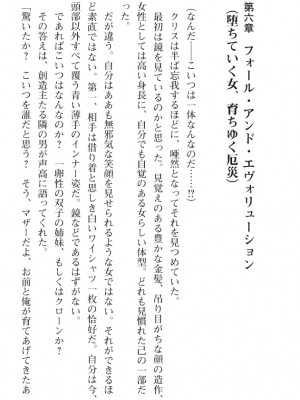 第六章　フォール・アンド・エヴォリューション
（堕ちていく女、育ちゆく厄災）
（なんだ――こいつは一体なんなのだ……!?）
　クリスは半ば忘我するほどに、唖然となってそれを見つめていた。
　最初は鏡を見ているのかと思った。見覚えのある豊かな金髪、吊り目がちな顔の造作、
女性としては高い身長に、自分でも自覚のある女らしい体型。どれも見慣れた己の一部だ
った。
　だが違う。自分はああも無邪気な笑顔を見せられるような女ではない。それができるほ
ど素直ではない。第一、相手は借り着と思しき白いワイシャツ一枚の恰好だ。自分は今、
頭部以外すべて覆う青い薄手のインナー姿だ。鏡などであるはずがない。
　であればこいつはなんなのか？　一卵性の双子の姉妹、もしくはクローンか？
　その答えは、創造主たる隣の男が声高に語ってくれた。
「驚いたか？　こいつを誰だと思う？　そう、マザーだよ、お前と俺が育てあげてきたあ